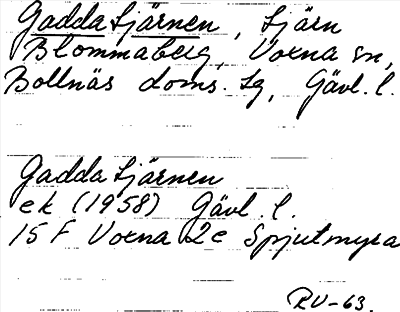 Gadda tjärnen, tjärn
Blommaberg, Voxna sn,
Bollnäs doms. tg, Gävl. l.
Gadda tjärnen
ek (1958) Gävl. l.
15 F Voxna 2e Spjutmyra
RU-63.